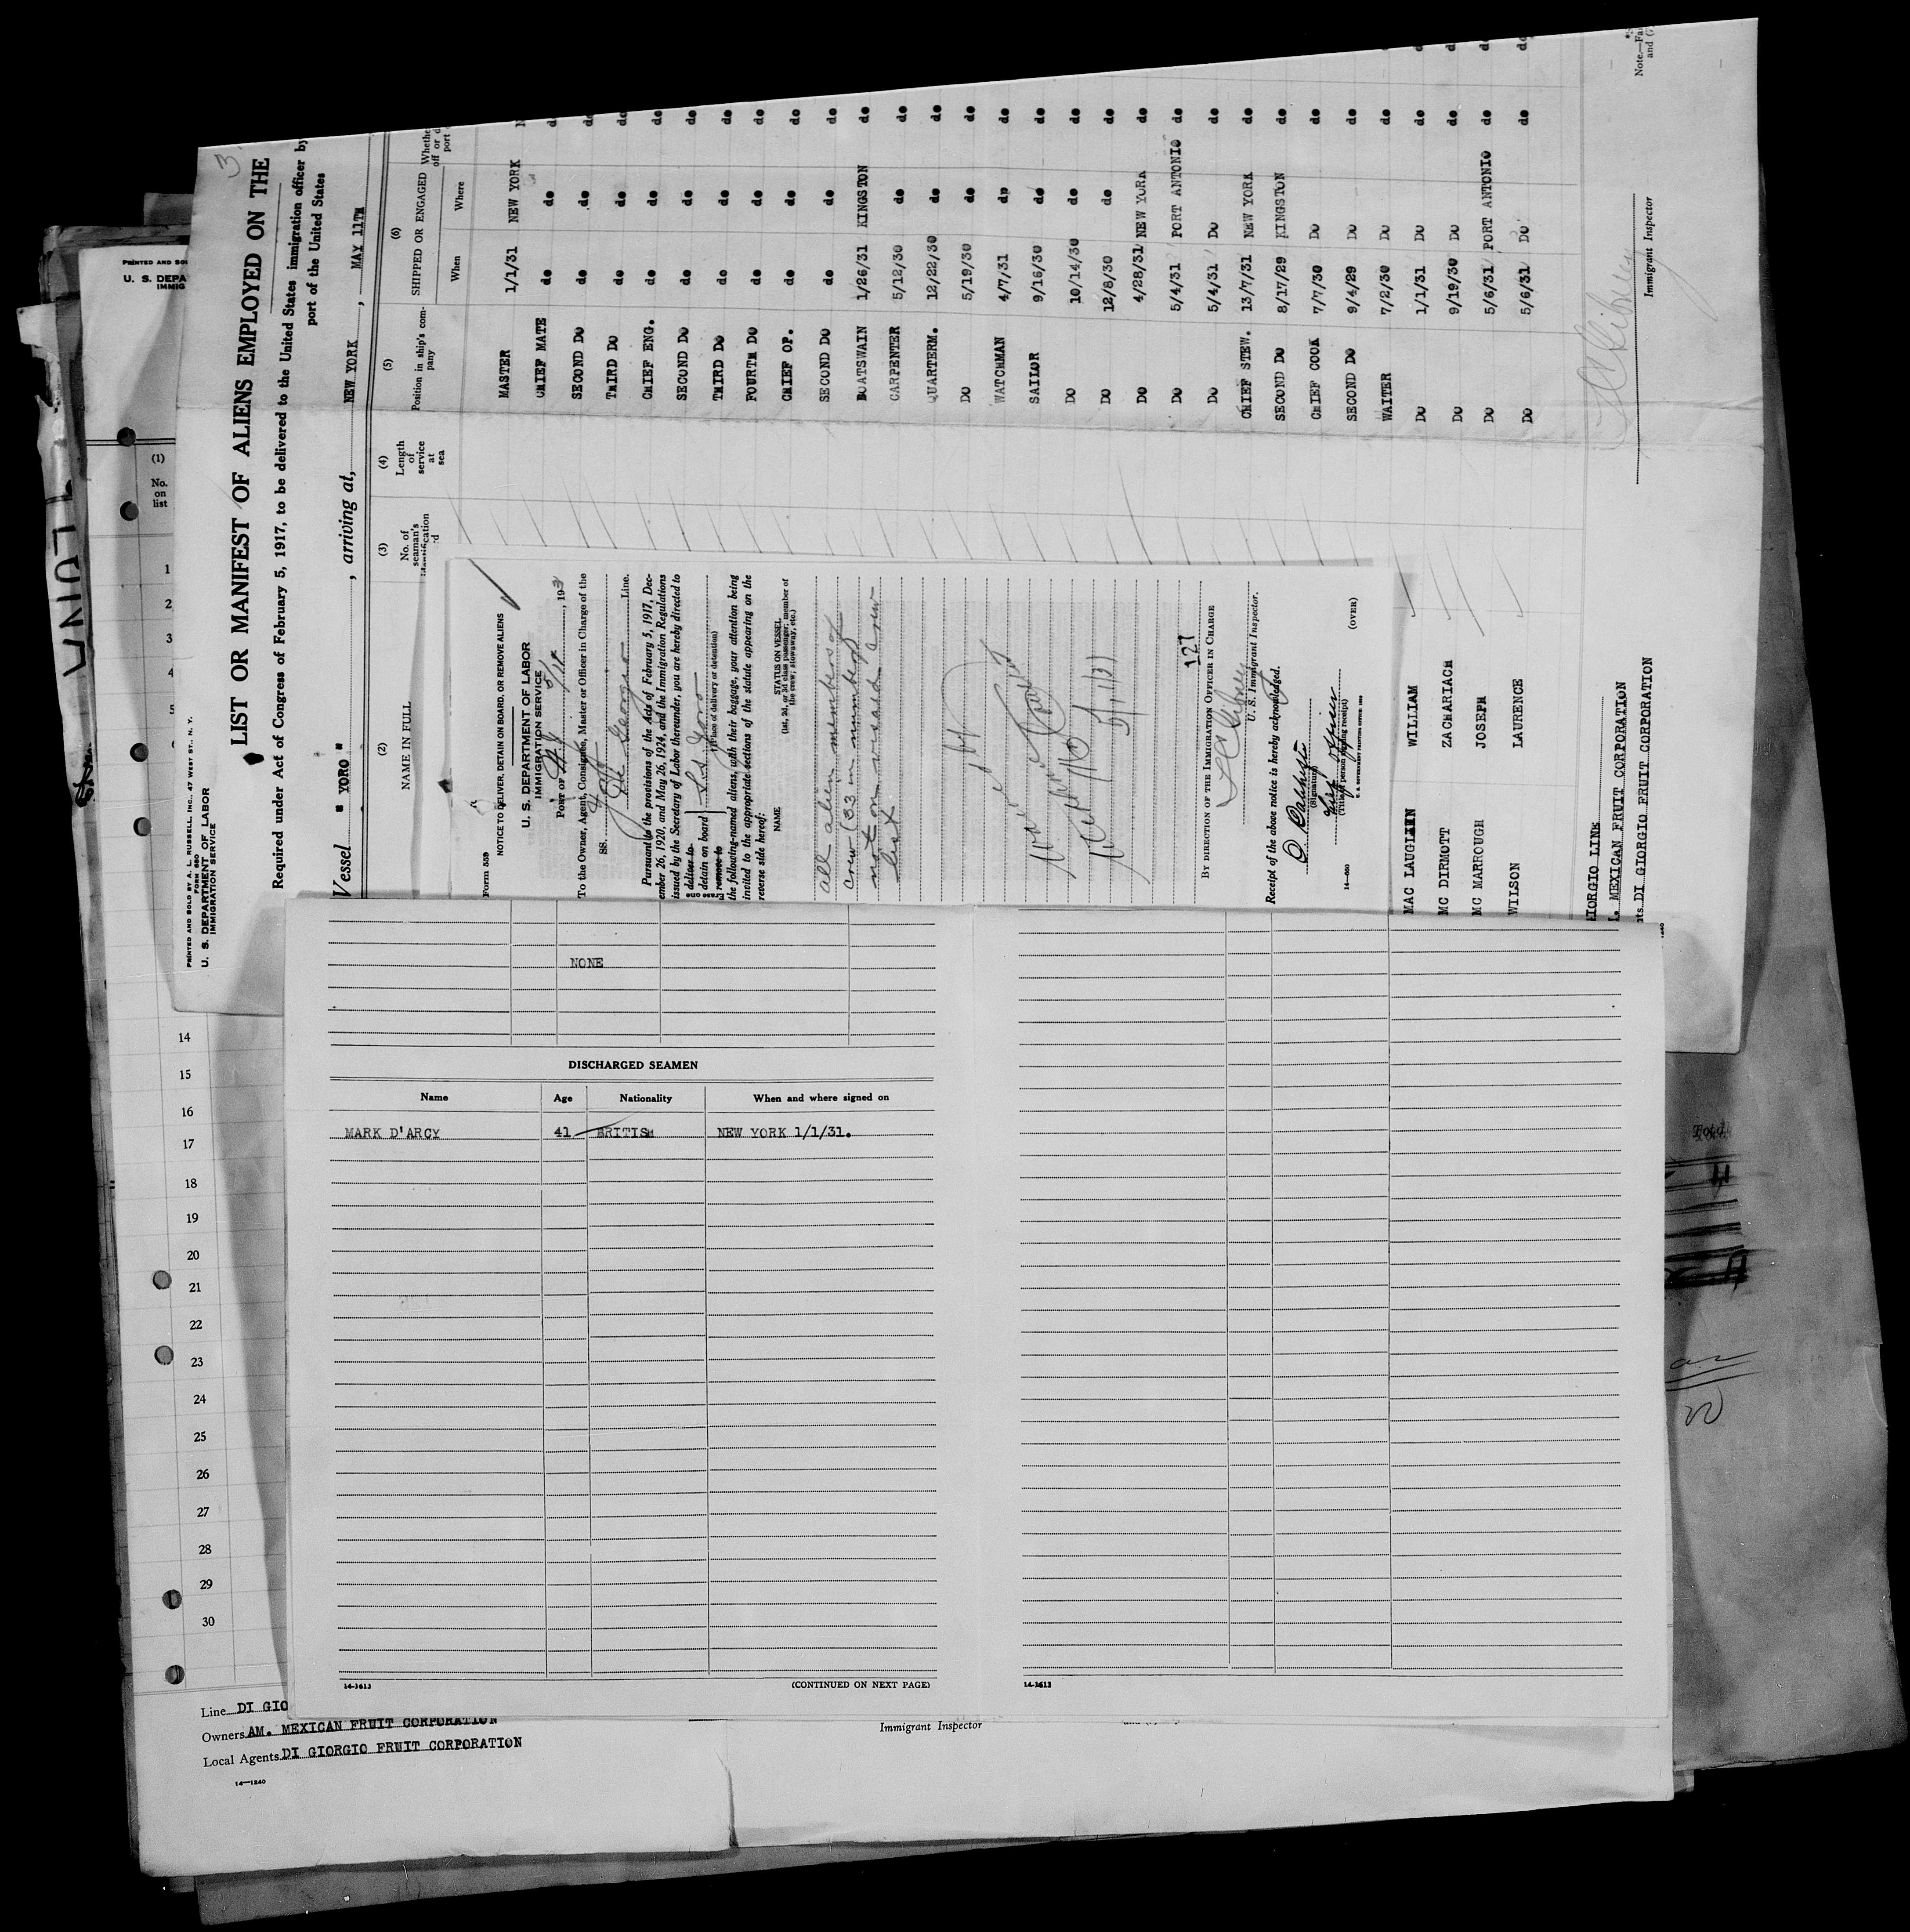 3
PRINTED AND SOLD BY A. L. RUSSELL, INC., 47 WEST ST., N. Y.
FORM 680
U. S. DEPARTMENT OF LABOR
IMMIGRATION SERVICE
LIST OR MANIFEST OF ALIENS EMPLOYED ON THE
Required under Act of Congress of February 5, 1917, to be delivered to the United States immigration officer by
port of the United States
Vessel " YORO " , arriving at, NEW YORK , MAY 11TH
(2) (3) (4) (5) (6)
NAME IN FULL
No. of seaman's
Length of service at sea
Position in ship's company
SHIPPED OR ENGAGED
When Where
MASTER 1/1/31 NEW YORK
CHIEF MATE do do do
SECOND DO do do do
THIRD DO do do do
CHIEF ENG. do do do
SECOND DO do do do
THIRD DO do do do
FOURTH DO do do do
CHIEF OP. do do do
SECOND DO do do do
BOATSWAIN 1/26/31 KINGSTON do
CARPENTER 5/12/30 do do
QUARTERM. 12/22/30 do do
DO 5/19/30 do do
WATCHMAN 4/7/31 dp do
SAILOR 9/16/30 do do
DO 10/14/30 do do
DO 12/8/30 do do
DO 4/28/31 NEW YORK do
DO 5/4/31 PORT ANTONIO do
DO 5/4/31 DO do
CHIEF STEW. 13/7/31 NEW YORK do
SECOND DO 8/17/29 KINGSTON do
CHIEF COOK 7/7/30 DO do
SECOND DO 9/4/29 DO do
WAITER 7/2/30 DO do
DO 1/1/31 DO do
DO 9/19/30 DO do
DO 5/6/31 PORT ANTONIO do
DO 5/6/31 DO do
MAC LAUGLINN WILLIAM
MC DIRMOTT ZACHARIACH
MC MARROUGH JOSEPH
WILSON LAURENCE
Immigrant Inspector
GIORGIO LINE
MEXICAN FRUIT CORPORATION
DI GIORGIO FRUIT CORPORATION
Form 559
NOTICE TO DELIVER, DETAIN ON BOARD, OR REMOVE ALIENS
U. S. DEPARTMENT OF LABOR
IMMIGRATION SERVICE
PORT OF N Y 5/11 , 193
To the Owner, Agent, Consignee, Master or Officer in Charge of the
SS. Yoro
Di Georgio Line.
Pursuant to the provisions of the Acts of February 5, 1917, Dec-
ember 26, 1920, and May 26, 1924, and the Immigration Regulations
issued by the Secretary of Labor thereunder, you are hereby directed to
deliver to
detain on board S.S. Yoro
remove to (Place of delivery or detention)
the following-named aliens, with their baggage, your attention being
invited to the appropriate sections of the statute appearing on the
reverse side hereof:
NAME STATUS ON VESSEL
(1st, 2d, or 3d class passenger; member of
the crew; stowaway, etc.)
all alien members of
crew (33 in number)
not on visaed crew
list
127
BY DIRECTION OF THE IMMIGRATION OFFICER IN CHARGE
U. S. Immigrant Inspector.
Receipt of the above notice is hereby acknowledged.
(Signature)
(Title of person signing receipt)
14—680 (OVER)
PRINTED AND SOL
U. S. DEPA
IMMIG
(1)
No. on list
1
2
3
4
5
14
15
16
17
18
19
20
21
22
23
24
25
26
27
28
29
30
NONE
DISCHARGED SEAMEN
Name Age Nationality When and where signed on
MARK D'ARCY 41 BRITISH NEW YORK 1/1/31.
14-1613 (CONTINUED ON NEXT PAGE) 14-1613
Line DI GIO
Owners AM. MEXICAN FRUIT CORPORATION
Local Agents DI GIORGIO FRUIT CORPORATION
14—1240
Immigrant Inspector
Total